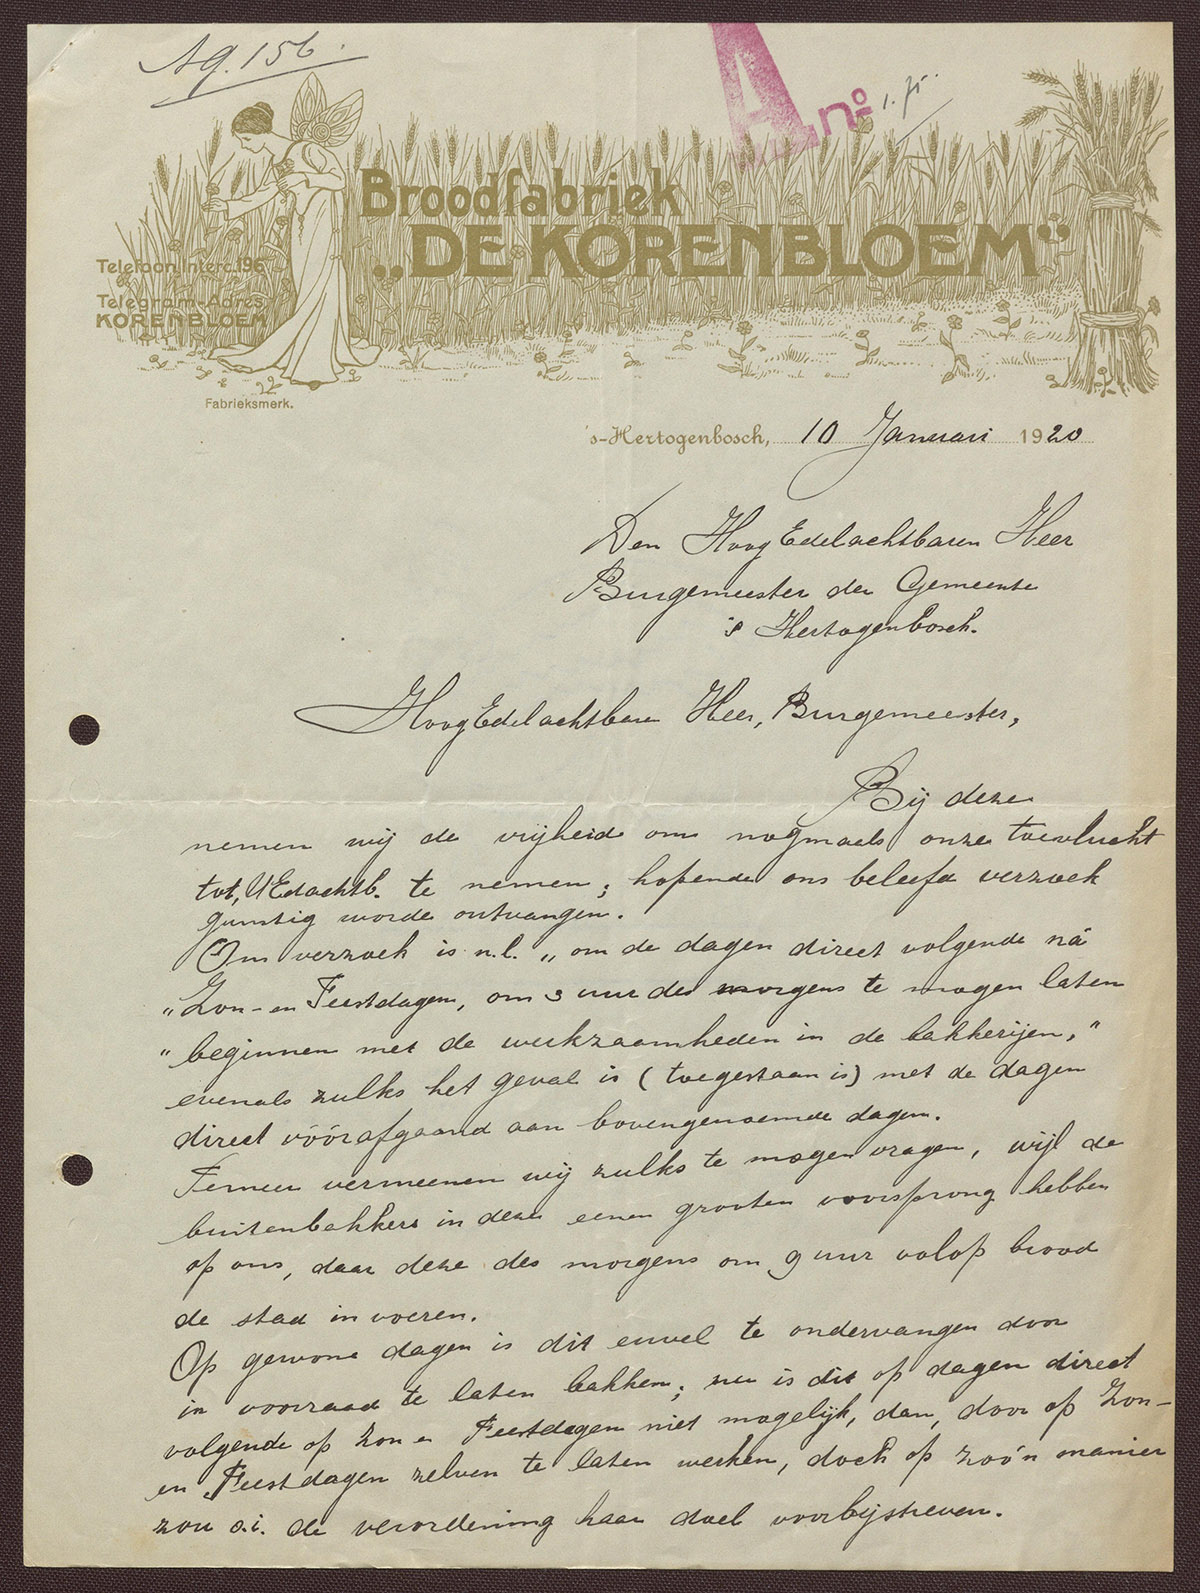 Ag. 156.
A. no 1.75.
Broodfabriek
„DE KORENBLOEM”
Telefoon Interc. 196
Telegram-Adres
KORENBLOEM
Fabrieksmerk.
's-Hertogenbosch, 10 Januari 1920
Den HoogEdelachtbaren Heer
Burgemeester der Gemeente
's Hertogenbosch.
HoogEdelachtbare Heer, Burgemeester,
Bij deze
nemen wij de vrijheid om nogmaals onze toevlucht
tot, UEdachtb. te nemen; hopende ons beleefd verzoek
gunstig worde ontvangen.
Ons verzoek is n.l. „om de dagen direct volgende ná
„Zon- en Feestdagen, om 3 uur des morgens te mogen laten
„beginnen met de werkzaamheden in de bakkerijen,”
evenals zulks het geval is (toegestaan is) met de dagen
direct vóórafgaand aan bovengenoemde dagen.
Temeer vermeenen wij zulks te mogen vragen, wijl de
buitenbakkers in deze eenen grooten voorsprong hebben
op ons, daar deze des morgens om 9 uur volop brood
de stad in voeren.
Op gewone dagen is dit euvel te ondervangen door
in voorraad te laten bakken; nu is dit op dagen direct
volgende op Zon en Feestdagen niet mogelijk, dan, door op Zon-
en Feestdagen zelven te laten werken, doch op zoo'n manier
zou o.i. de verordening haar doel voorbijstreven.